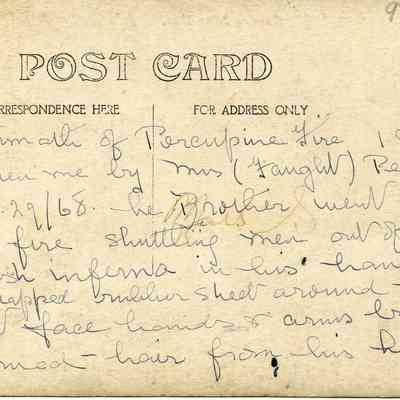 9
POST CARD
RRESPONDENCE HERE FOR ADDRESS ONLY
math of Porcupine Fire 19
en me by Mrs (Faught) Pe
. 29/68. he Brother went
fire shuttling men out of
inferno in his han
apped rubber sheet around
face hands & arms b
med - hair from his h